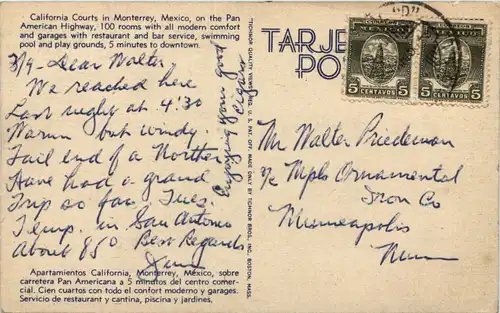 California Courts in Monterrey, Mexico, on the Pan
American Highway, 100 rooms with all modern comfort
and garages with restaurant and bar service, swimming
pool and play grounds, 5 minutes to downtown.
3/9 - Dear Walter
We reached here
Last night at 4:30
Warm but windy.
Tail end of a Norther
Have had a grand
Trip so far. Tues.
Temp. in San Antonio
About 850 Best Regards
Jim
Enjoying your good
cigars
Apartamientos California, Monterrey, México, sobre
carretera Pan Americana a 5 minutos del centro comer-
cial. Cien cuartos con todo el confort moderno y garages.
Servicio de restaurant y cantina, piscina y jardines.
"TICHNOR QUALITY VIEWS," REG. U. S. PAT. OFF. MADE ONLY BY TICHNOR BROS., INC., BOSTON, MASS.
TARJE
POS
"D"
5 CENTAVOS 5
5 CENTAVOS 5
Mr Walter Friedeman
% Mpls Ornamental
Iron Co
Minneapolis
Minn